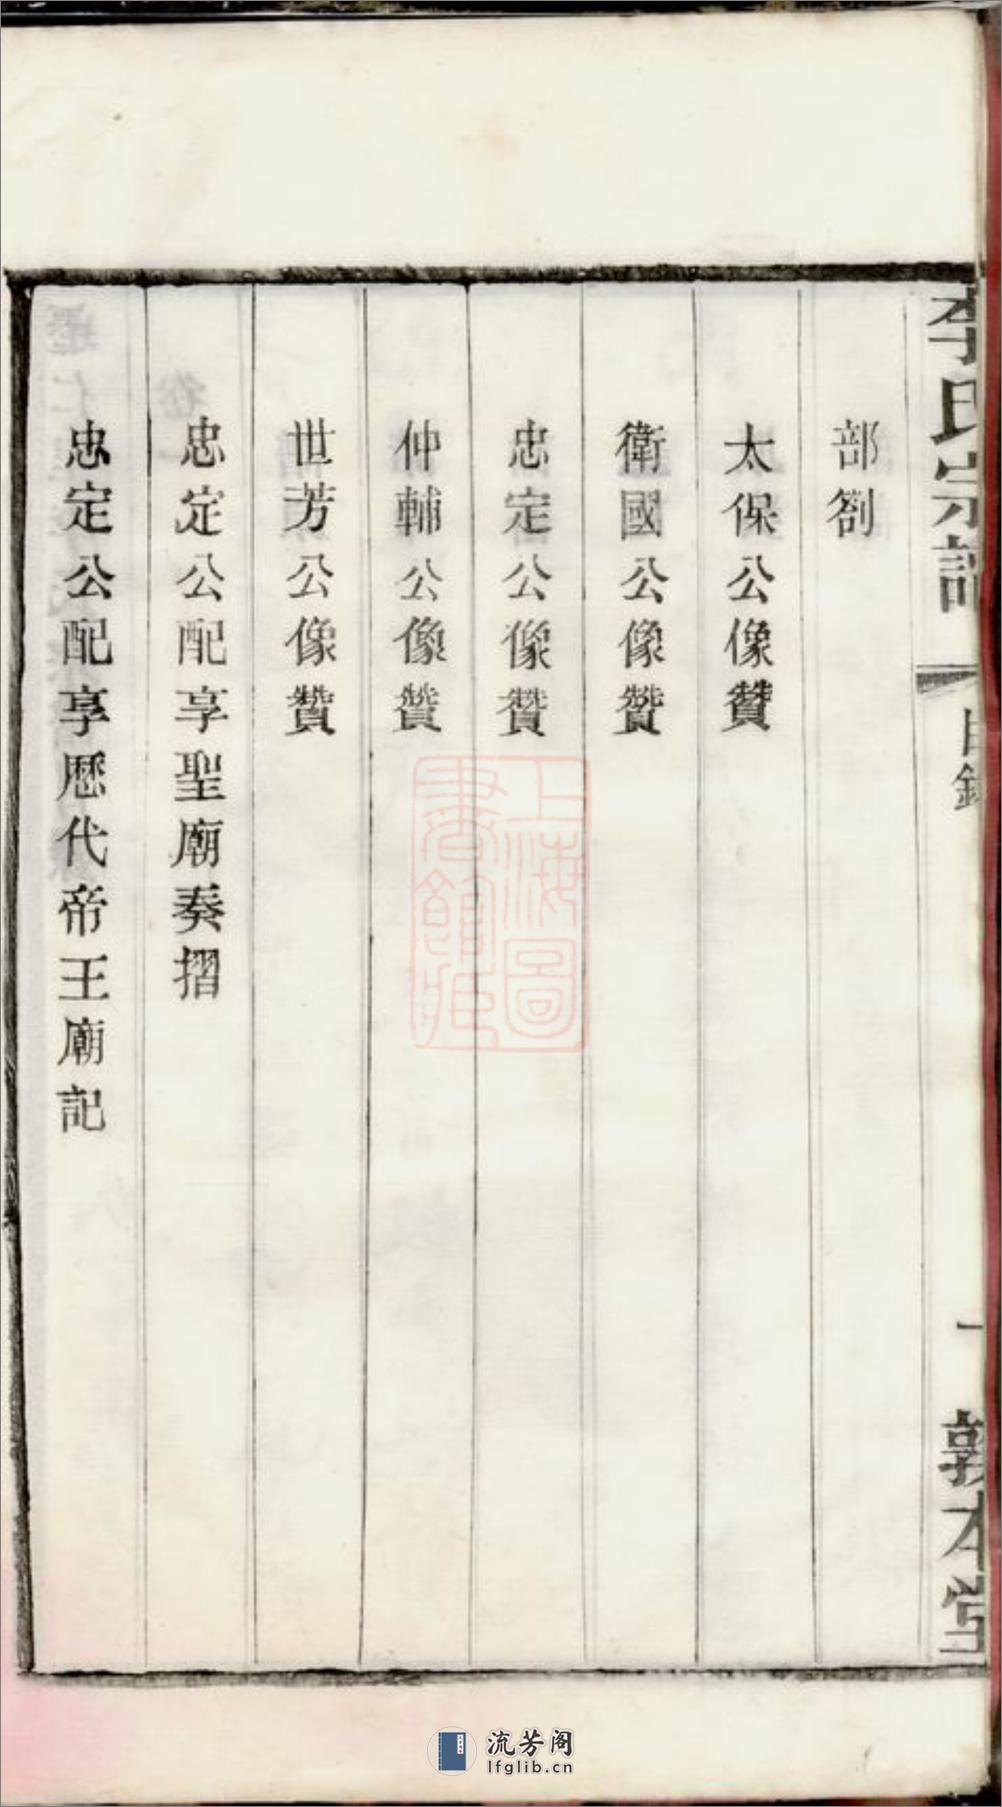 李氏宗譜
目錄
一
敦本堂
部劄
太保公像贊
衛國公像贊
忠定公像贊
仲輔公像贊
世芳公像贊
忠定公配享聖廟奏摺
忠定公配享歷代帝王廟記
上海圖
書館藏
流芳阁
lfglib.cn